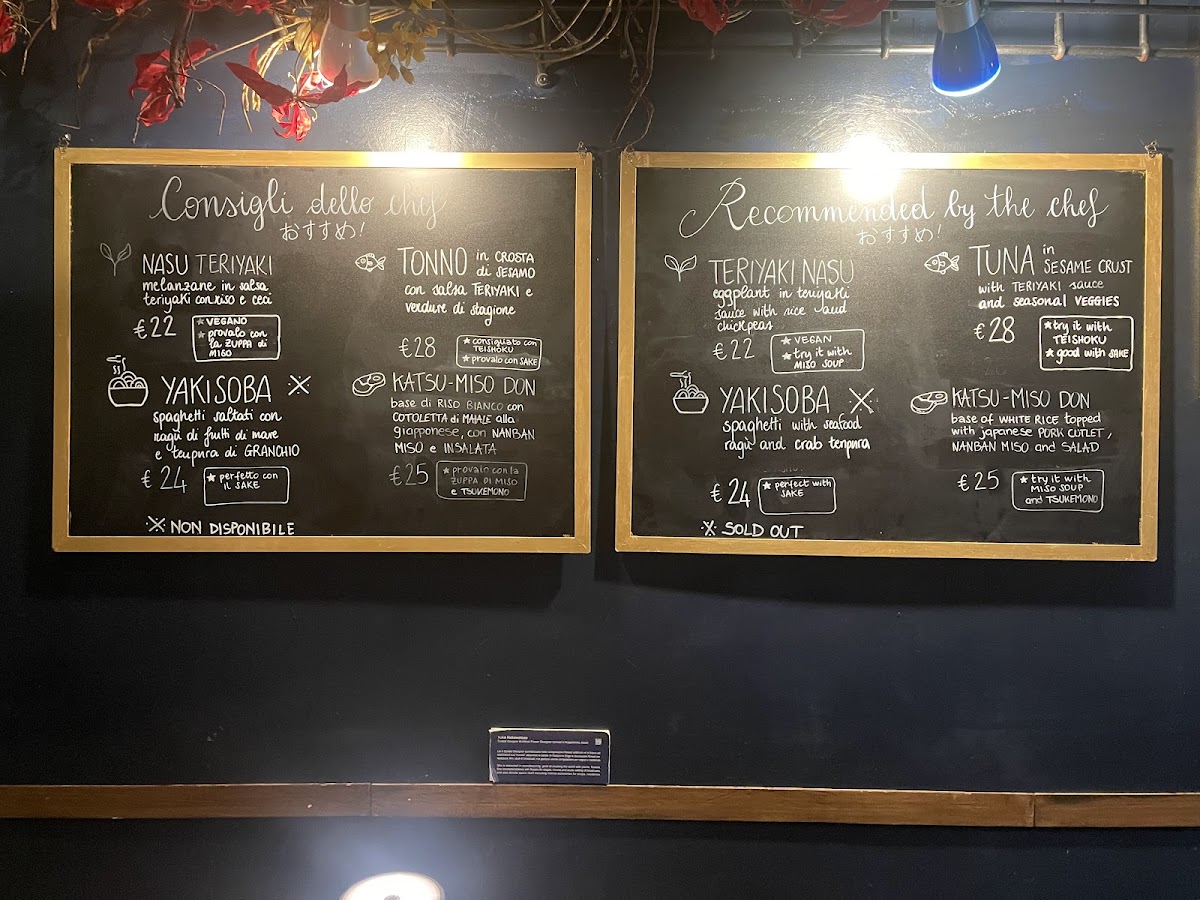 Consigli dello chef
おすすめ!
NASU TERIYAKI
melanzane in salsa
teriyaki con riso e ceci
€22
★ VEGANO
★ provalo con
la ZUPPA di
MISO
TONNO in CROSTA
di SESAMO
con salsa TERIYAKI e
verdure di stagione
€28
★ consigliato con
TEISHOKU
★ provalo con SAKE
YAKISOBA ※
spaghetti saltati con
ragù di frutti di mare
e tempura di GRANCHIO
€24
★ perfetto con
il SAKE
KATSU-MISO DON
base di RISO BIANCO con
COTOLETTA di MAIALE alla
giapponese, con NANBAN
MISO e INSALATA
€25
★ provalo con la
ZUPPA DI MISO
e TSUKEMONO
※ NON DISPONIBILE
Recommended by the chef
おすすめ!
TERIYAKI NASU
eggplant in teriyaki
sauce with rice and
chickpeas
€22
★ VEGAN
★ try it with
MISO SOUP
TUNA in
SESAME CRUST
with TERIYAKI sauce
and seasonal VEGGIES
€28
★ try it with
TEISHOKU
★ good with SAKE
YAKISOBA ※
spaghetti with seafood
ragù and crab tempura
€24
★ perfect with
SAKE
KATSU-MISO DON
base of WHITE RICE topped
with japanese PORK CUTLET,
NANBAN MISO and SALAD
€25
★ try it with
MISO SOUP
and TSUKEMONO
※ SOLD OUT